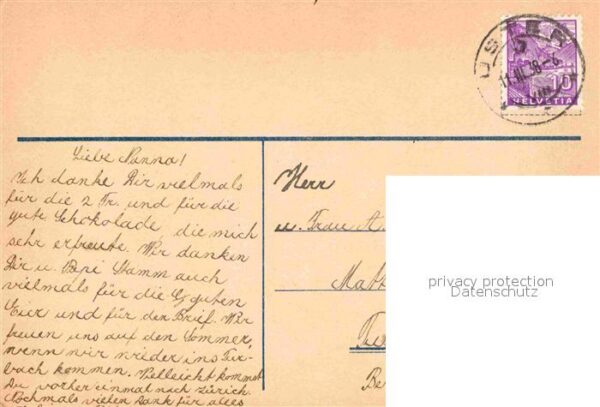 USTER
11.III.38-6
10
HELVETIA
Liebe Nanna!
Ich danke Dir vielmals
für die 2 Fr. und für die
gute Schokolade, die mich
sehr erfreute. Wir danken
Dir u. Papi Stamm auch
vielmals für die guten
Eier und für den Brief. Wir
freuen uns auf den Sommer,
wenn wir wieder ins
bach kommen. Vielleicht kommst
Du vorher einmal nach Zürich.
Nochmals vielen Dank für alles
Herr
u. Frau A.
Matt
Be
privacy protection
Datenschutz